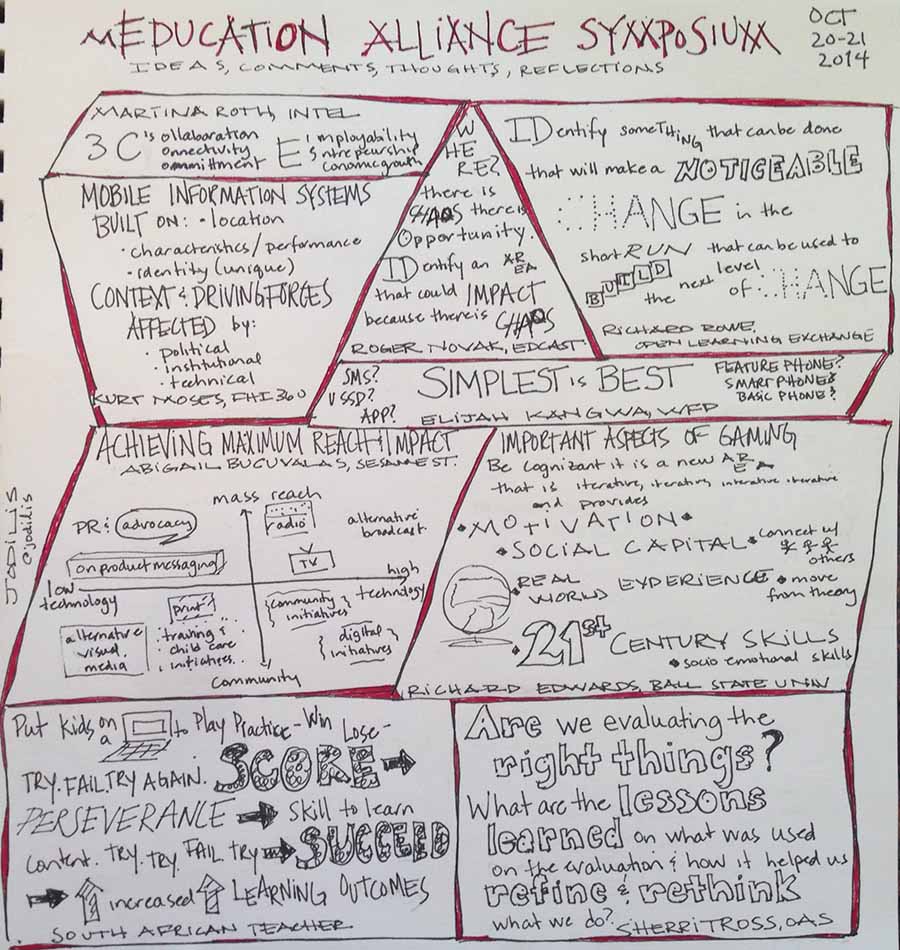 mEDUCATION ALLIANCE SYMPOSIUM
OCT
20-21
2014
IDEAS, COMMENTS, THOUGHTS, REFLECTIONS
MARTINA ROTH, INTEL
3 C's ollaboration
onnectivity
ommittment
E imployability
entrepeurship
conomic growth
MOBILE INFORMATION SYSTEMS
BUILT ON: • location
• characteristics/performance
• identity (unique)
CONTEXT & DRIVING FORCES
AFFECTED by:
• political
• institutional
• technical
KURT MOSES, FHI 360
W
HE
RE?
there is
CHAOS there is
Opportunity.
IDentify an AREA
that could IMPACT
because there is
CHAOS
ROGER NOVAK, EDCAST
IDentify someTHING that can be done
that will make a NOTICEABLE
CHANGE in the
short RUN that can be used to
BUILD the next level
of CHANGE
RICHARD ROWE,
OPEN LEARNING EXCHANGE
SMS?
USSD?
APP?
SIMPLEST is BEST
FEATURE PHONE?
SMART PHONE?
BASIC PHONE?
ELIJAH KANGWA, WFP
ACHIEVING MAXIMUM REACH + IMPACT
ABIGAIL BUCUVALAS, SESAME ST.
mass reach
PR: advocacy
radio
alternative
broadcast
on product messaging
TV
low
technology
high
technology
print
community
initiatives
alternative
visual
media
training &
child care
initiatives
digital
initiatives
community
IMPORTANT ASPECTS OF GAMING
Be cognizant it is a new AREA
that is iterative, iterative, interative iterative
and provides
• MOTIVATION •
• SOCIAL CAPITAL • connect w/
others
• REAL
WORLD EXPERIENCE • move
from theory
• 21st CENTURY SKILLS
• socio emotional skills
RICHARD EDWARDS, BALL STATE UNIV
JODILIS
@jodilis
Put Kids on
a to Play Practice - Win Lose -
TRY. FAIL. TRY AGAIN. SCORE
PERSEVERANCE skill to learn
content. TRY. TRY. FAIL TRY SUCCEED
increased LEARNING OUTCOMES
SOUTH AFRICAN TEACHER
Are we evaluating the
right things?
What are the lessons
learned on what was used
on the evaluation & how it helped us
refine & rethink
what we do?
SHERRI TROSS, OAS